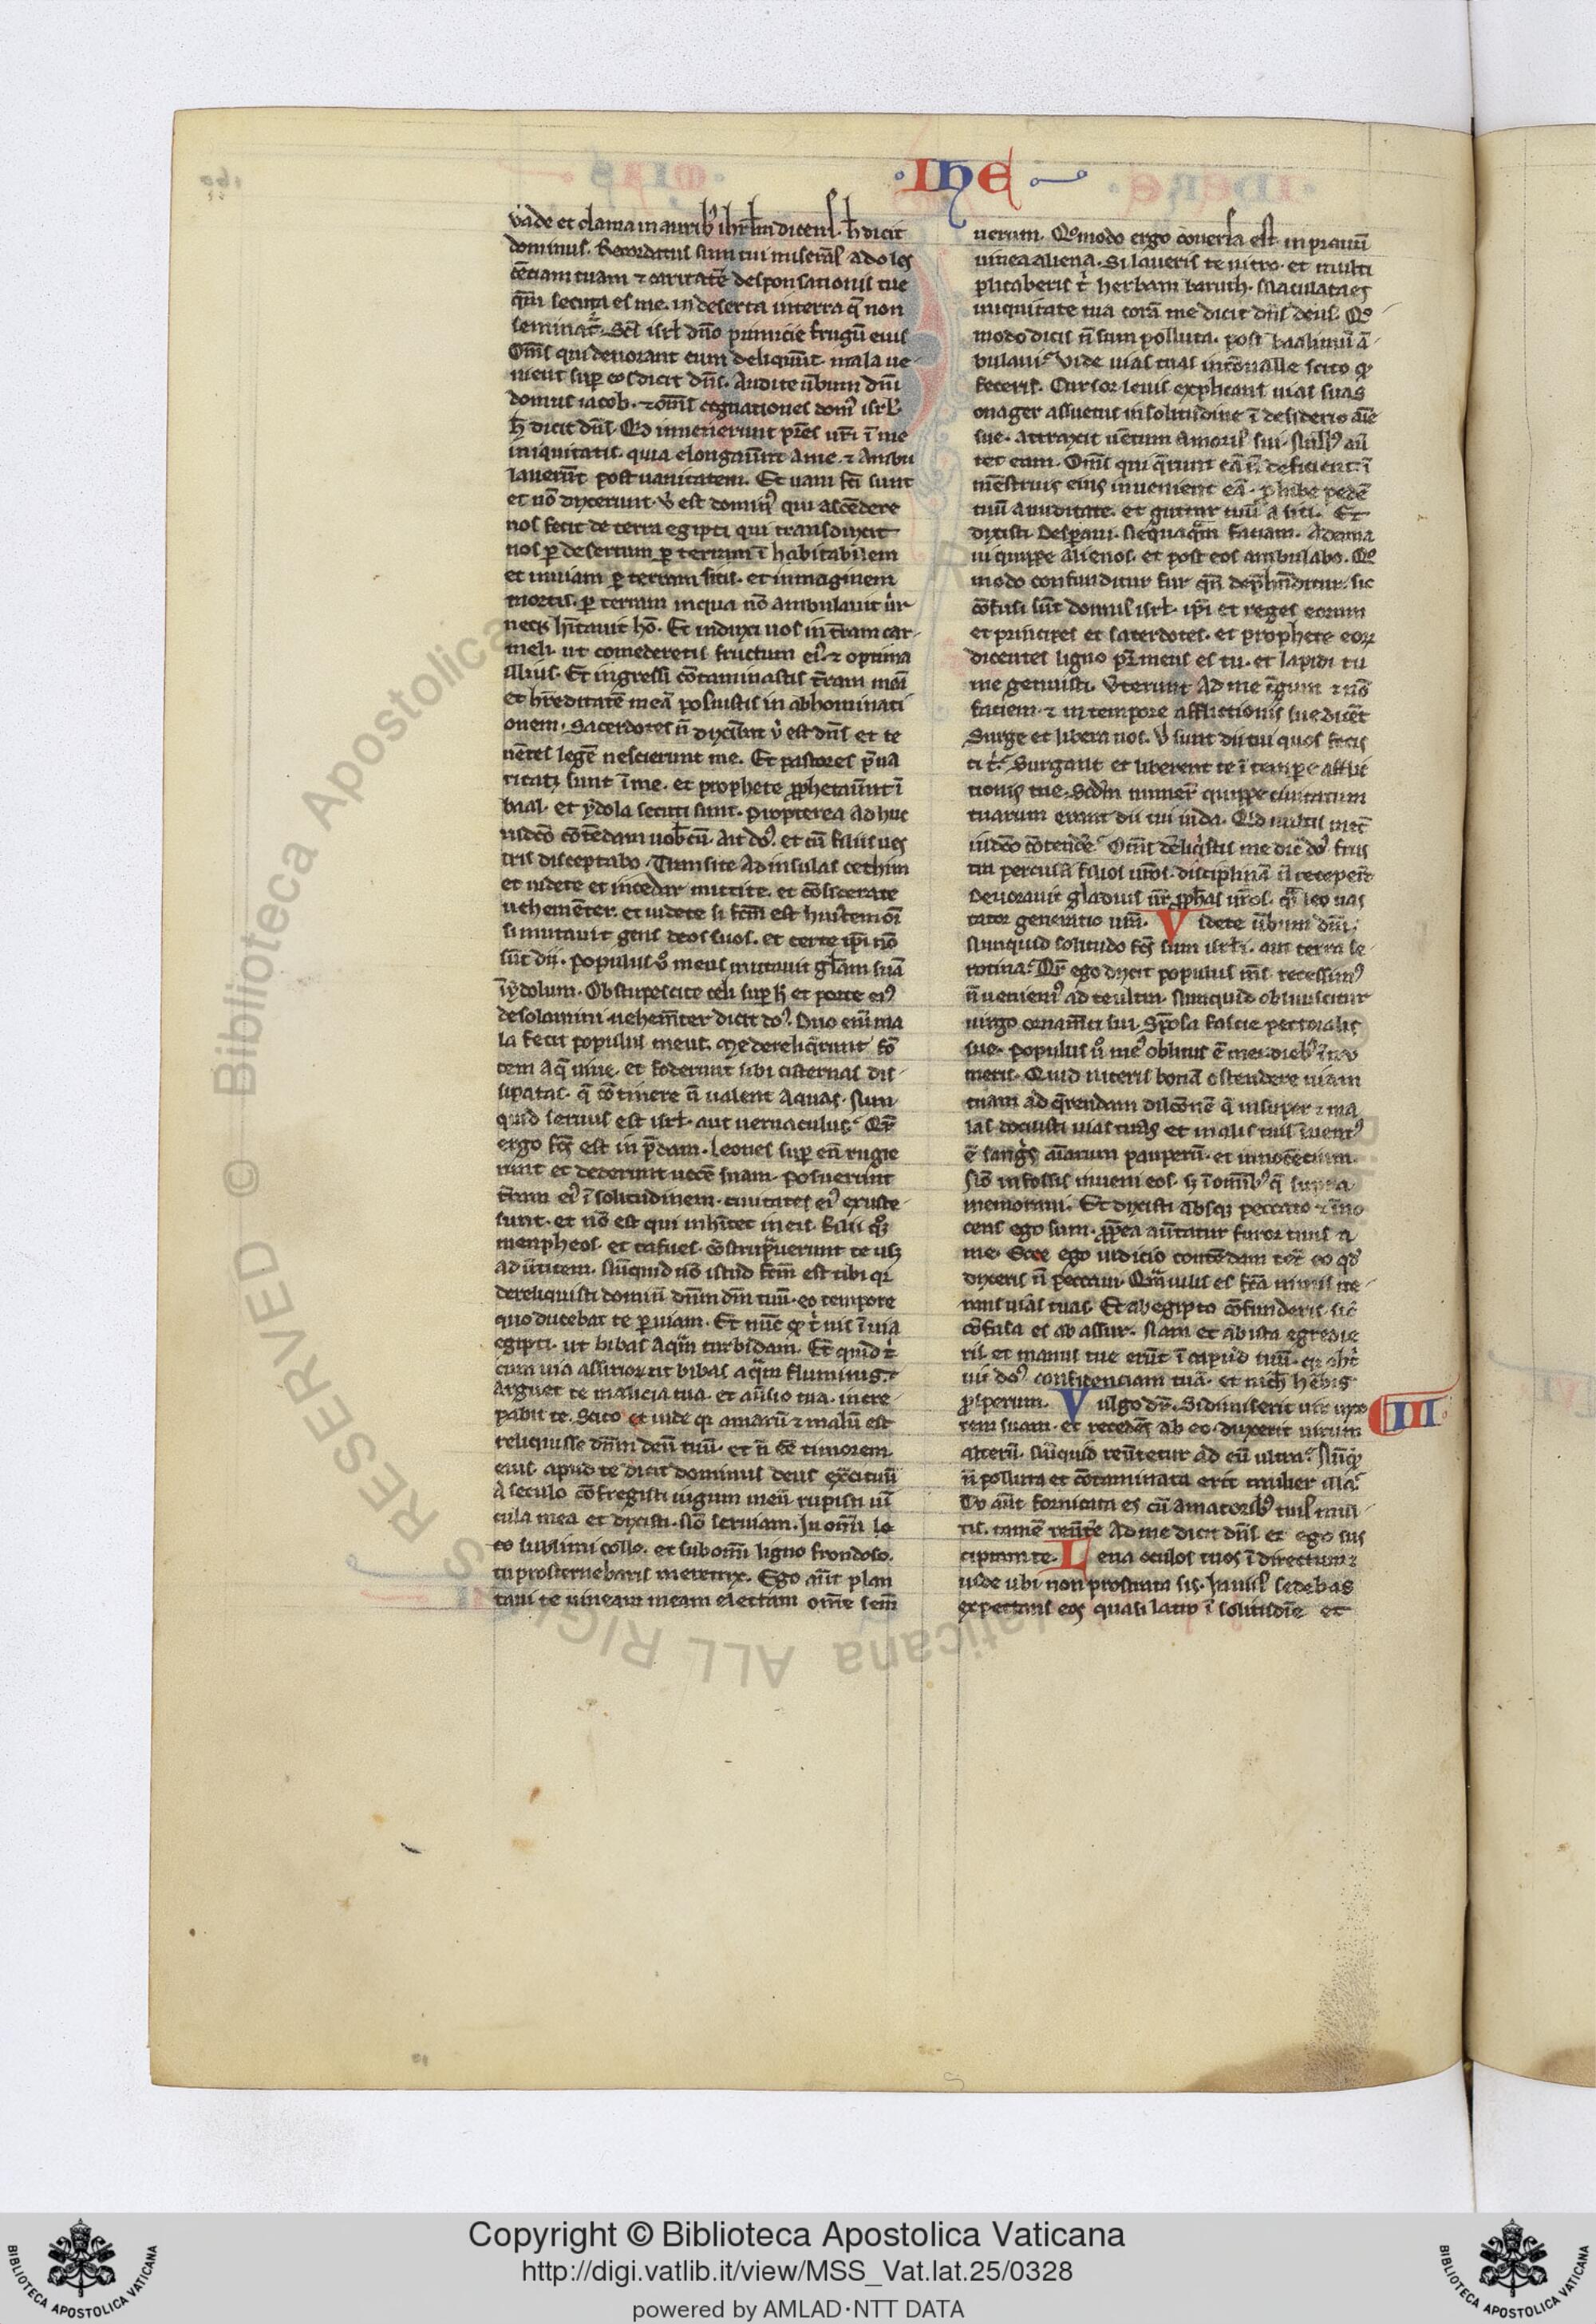 · IHE
vade et clama in aurib' ihrl̄m dicens. h̄ dicit
dominus. Recordatus sum tui miserās adoles
cētiam tuam ⁊ caritatē desponsationis tue
qn̄ secuta es me. in deserta in terra q̄ non
seminat᷑. Scs̄ isrl̄ dn̄o primicie frugū eius
Om̄s qui deuorant eum deliquūt. mala ue
nient sup̄ eos dicit dn̄s. Audite ūbum dn̄i
domus iacob. ⁊ om̄s cognationes dom' isrl̄.
h̄ dicit dn̄s. Qd inuenerunt pr̄es ur̄i ī me
iniquitatis. quia elongauūt a me. ⁊ ambu
lauerūt post uanitatem. Et uani fc̄i sunt
et nō dixerunt. v̇ est domin' qui ascēdere
nos fecit de terra egipti qui transduxit
nos ꝑ desertum ꝑ terram ī habitabilem
et inuiam ꝑ terram sitis. et inmaginem
mortis. ꝑ terram in qua nō ambulauit uir
nec hītauit hō. Et induxi uos in tr̄am car
meli. ut comederetis fructum ei'. ⁊ optima
illius. Et ingressi cōtaminastis tr̄am meā
et hr̄editatē meā posuistis in abhominati
onem. Sacerdotes n̄ dixer̄t v̇ est dn̄s et te
nētes legē nescierunt me. Et pastores p̄ua
ricati sunt ī me. et prophete ꝓphetauūt ī
baal. et ydola secuti sunt. Propterea adhuc
iudicō cōtēdam uob̄cū. ait do'. et cū filiis ues
tris disceptabo. Transite ad insulas cethim
et uidete et in cedar mittite. et cōsiderate
uehemēter. et uidete si fc̄m est huiscemōi
si mutauit gens deos suos. et certe ip̄i nō
sūt dii. Populus u° meus mutauit gl̄am suā
ī ydolum. Obstupescite celi sup̄ h̄ et porte ei'
desolamini uehemēter dicit do'. Duo eni̅ ma
la fecit populus meus. Me dereliq̄runt fō
tem aq̄ uiue. et foderunt sibi cisternas dis
sipatas. q̄ cōtinere n̄ ualent aquas. Nun
quid seruus est isrl̄. aut uernaculus. Qr̄
ergo fc̄s est in p̄dam. Leones sup̄ eū rugie
runt et dederunt uocē suam. Posuerunt
tr̄am ei' ī solitudinem. ciuitates ei' exuste
sunt. et nō est qui inhītet in eis. Filii q°ꝫ
menpheos. et tafnes. cōstup̄uerunt te usꝫ
ad ūticem. Nūquid nō istud fc̄m est tibi qꝛ
dereliquisti dominū dn̄m dm̄ tuū. eo tempore
quo ducebat te ꝑ uiam. Et nūc qͥd t' uis ī uia
egipti. ut bibas aqͣm turbidam. Et quid t'
cum uia assirioꝝ ut bibas aqͣm fluminis.
Arguet te malicia tua. et au̅sio tua. incre
pabit te. Scito et uide qꝛ amarū ⁊ malū est
reliquisse dn̄m deū tuū. et n̄ eē timorem
eius. apud te dicit dominus deus exc̄ituū
A seculo cōfregisti iugum meū. rupisti uī
cula mea et dixisti. Nō seruiam. In om̄i lo
co sublimi collo. et sub om̄i ligno frondoso.
tu prosternebaris meretrix. Ego aūt plan
taui te uineam meam electam om̄e sem̄
uerum. Q°modo ergo cōuersa est in prauū
uinea aliena. Si laueris te nitro. et multi
plicaberis t' herbam borith. Maculata es
iniquitate tua corā me dicit dn̄s deus. Q°
modo dicis n̄ sum polluta. post baalim n̄ ā
bulaui. Vide uias tuas in cōualle scito qͥd
feceris. Cursor leuis explicans uias suas
onager assuetus in solitudine ī desiderio aīe
sue. attraxit uētum amoris sui. Null' au̅
tet eam. Om̄s qui q̄runt eā n̄ deficient. ī
mēstruis eius inuenient eā. Prohibe pedē
tuū a nuditate. et guttur tuū a siti. Et
dixisti. Desp̄aui. Nequaqͣm faciam. Adama
ui quippe alienos. et post eos ambulabo. Q°
modo confunditur fur qn̄ dep̄hn̄ditur. sic
cōfusi sūt domus isrl̄. ip̄i et reges eorum
et principes et sacerdotes. et prophete eoꝝ
dicentes ligno pr̄ meus es tu. et lapidi tu
me genuisti. Vterunt ad me t̄gum ⁊ nō
faciem. ⁊ in tempore afflictionis sue dicēt
Surge et libera nos. v̇ sunt dii tui quos fecis
ti t'. Surgant et liberent te ī tempore afflic
tionis tue. Scdm̄ numer̄ quippe ciuitatum
tuarum erant dii tui iuda. Qͥd uultis mec̄
iudicō cōtendēe. Om̄s deliq̄stis me dic̄ do'. frus
tra percussi filios ur̄os. disciplinā n̄ receper̄t
Deuorauit gladius ur̄ ꝓphās ur̄os. qͣsi leo uas
tator generatio ur̄a. Videte ūbum dn̄i.
Nunquid solitudo fc̄s sum isrl̄i. aut terra se
rotina. Qr̄ ergo dixit populus m̄s recessim'
n̄ ueniem' ad te ultra. Nunquid obliuiscitur
uirgo ornam̄ti sui. Spōsa fascie pectoralis
sue. Populus u° me' oblitus ē mei dieb' īnu
meris. Quid niteris bonā ostendere uiam
tuam ad q̄rendam dilc̄onē q̄ insuper ⁊ ma
las docuisti uias tuas et in alis tuis īuent'
ē sangͥs aīarum pauperū. et innocētium.
Nō in fossis inueni eos. sꝫ ī om̄ib' q̄ supra
memoraui. Et dixisti absqꝫ peccato ⁊ īno
cens ego sum. ꝓp̄ea au̅tatur furor tuus a
me. Ecce ego iudicio contēdam tec̄ eo qd̄
dixeris n̄ peccaui. Qͣm uilis es fc̄a nimis ite
rans uias tuas. Et ab egipto cōfunderis. sic̄
cōfusa es ab assur. Nam et ab ista egredie
ris. et manus tue erūt ī capud tuū. qꝛ obt'
uit do' confidenciam tuā. et nich̄ hēbis
prosperum. Vulgo dr̄. Si dimiserit uir uxo III
rem suam. et recedēs ab eo. duxerit uirum
alterū. Nūquid reu̅tetur ad eū ultra. Nūqͥd
n̄ polluta et cōtaminata erit mulier illa.
Tu aūt fornicata es cū amatorib' tuis mul
tis. tamē reu̅tēe ad me dicit dn̄s et ego sus
cipiam te. Leua oculos tuos ī directum ⁊
uide ubi non prostrata sis. In uiis sedebas
expectans eos quasi latro ī solitudīe et
Copyright © Biblioteca Apostolica Vaticana
http://digi.vatlib.it/view/MSS_Vat.lat.25/0328
powered by AMLAD·NTT DATA
BIBLIOTECA APOSTOLICA VATICANA
BIBLIOTECA APOSTOLICA VATICANA
© Biblioteca Apostolica Vaticana ALL RIGHTS RESERVED